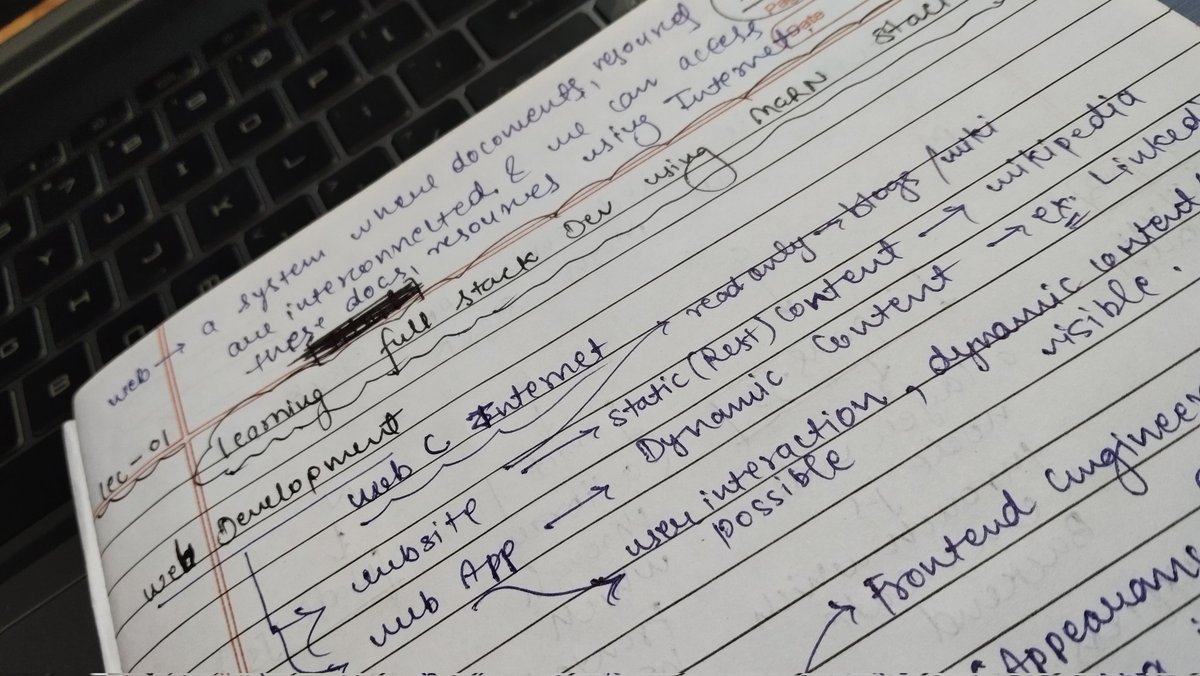 web → a system where documents, resources
are interconnected & we can access
these docs, resources using Internet.
Date
lec-01 Learning full stack Dev using MERN stack
web Development
web C Internet
website → static (Rest) content → wikipedia
read only → blogs / wiki
web App → Dynamic content → ex: Linked
user interaction, dynamic content
possible visible.
Frontend Engineer
Appearan